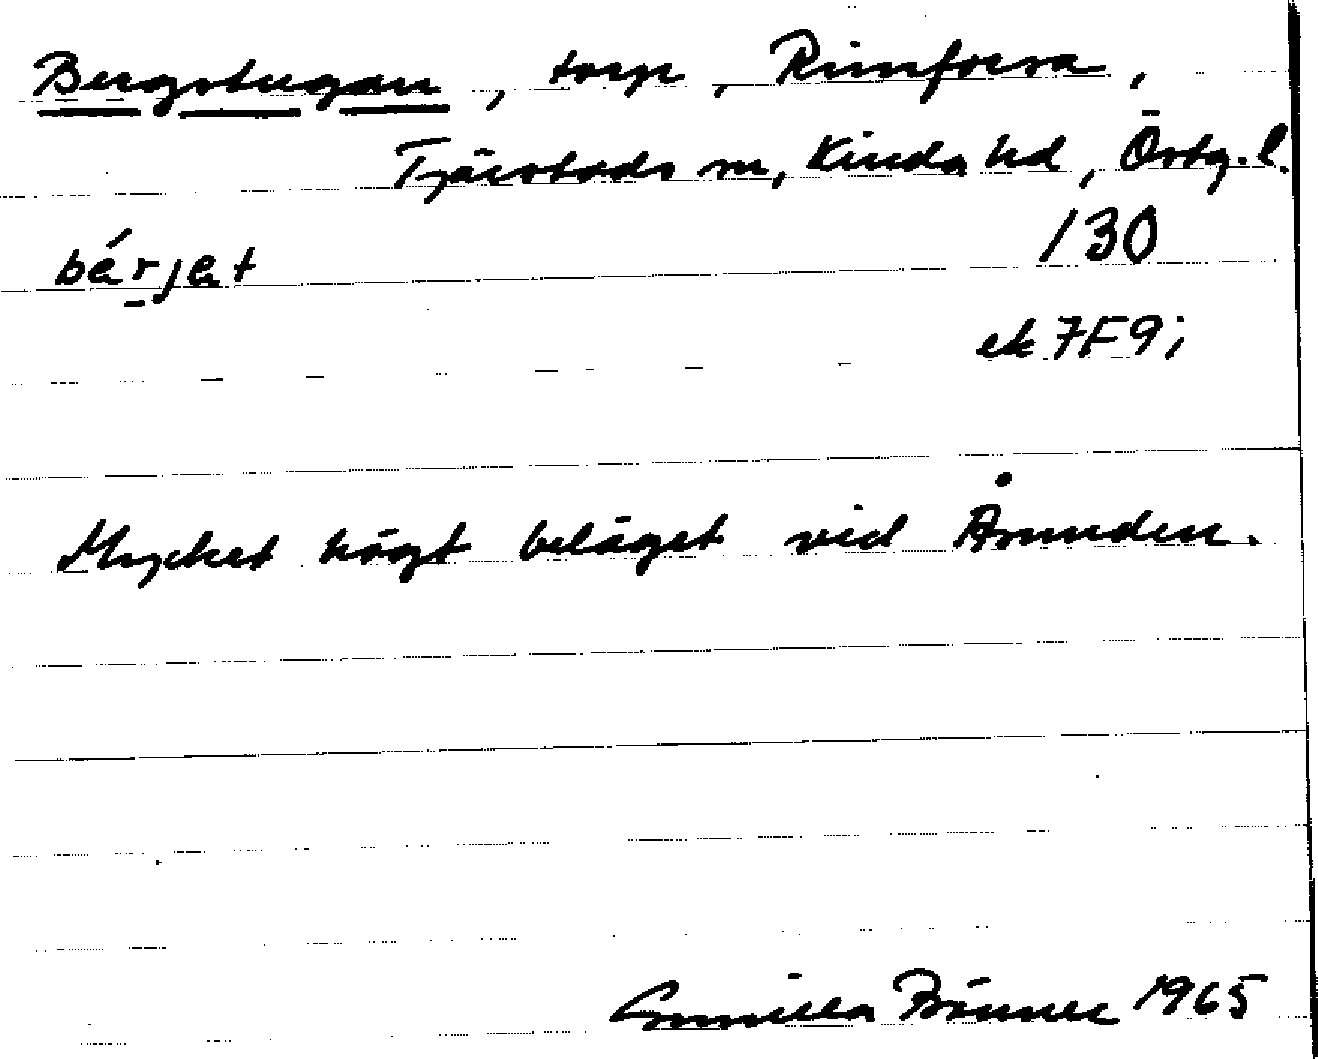 Bergstugan, torp, Rimforsa,
Tjärstads sn, Kinda hd, Östg. l.
bárjet 130
ek 7F9i
Mycket högt beläget vid Åsunden.
Gunilla 1965